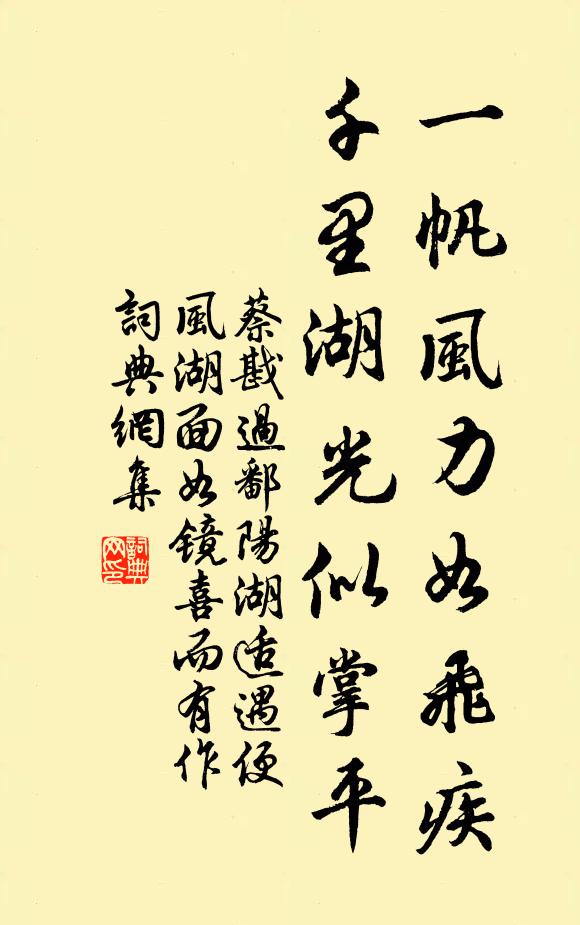 一帆風力如飛疾
千里湖光似掌平
蔡戡過鄱陽湖適遇便
風湖面如镜喜而有作
詞典網集
詞典網印